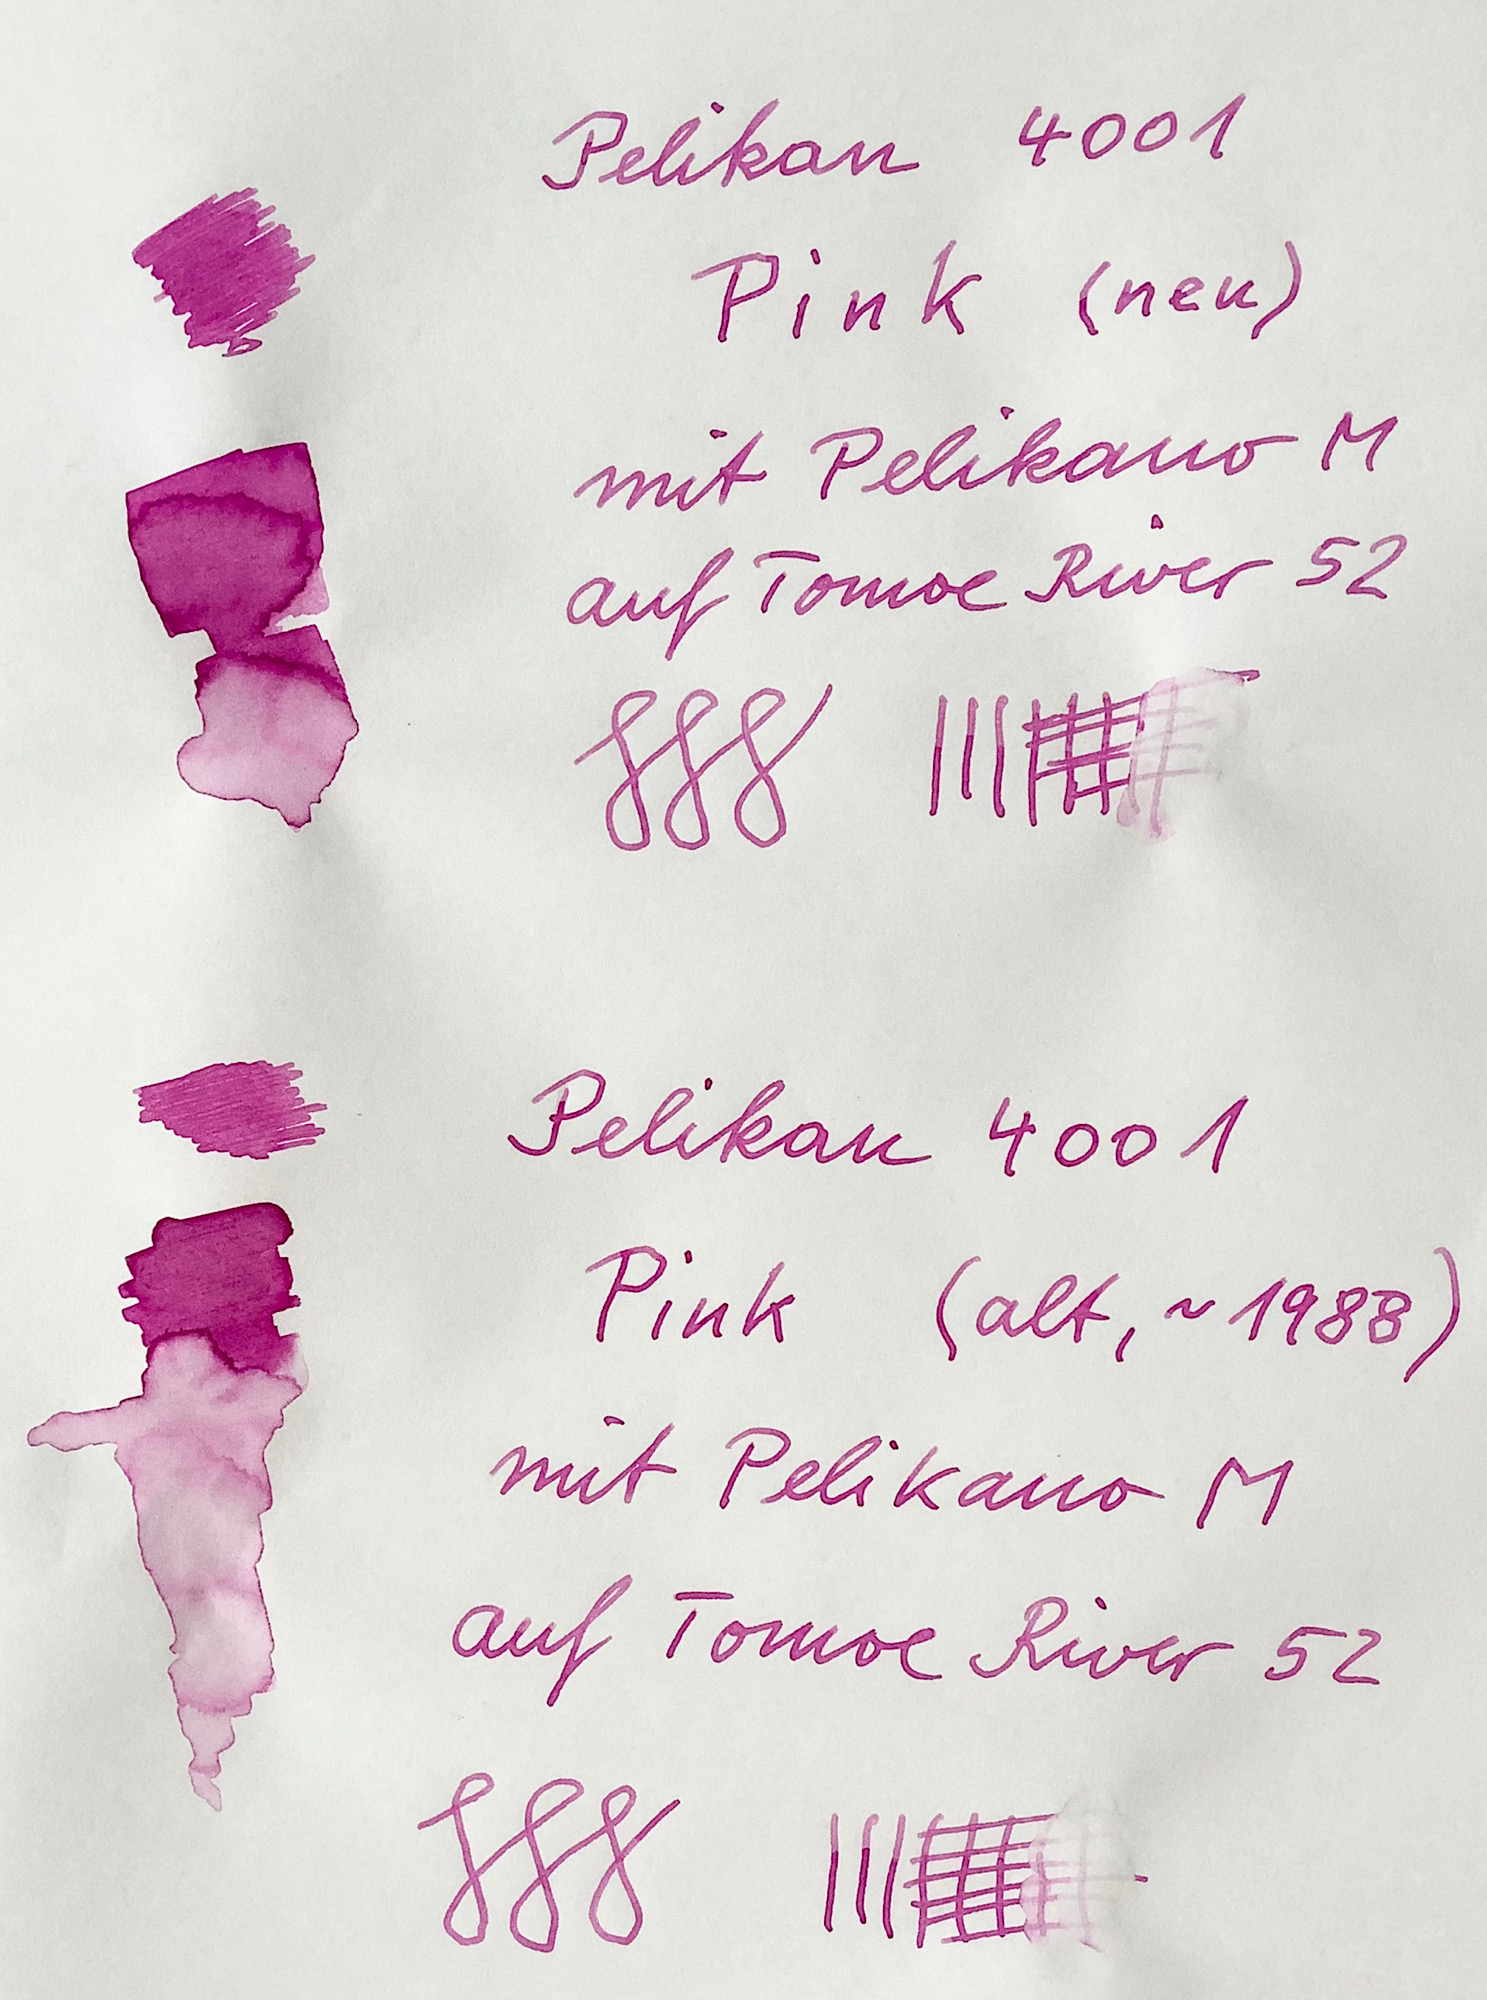 Pelikan 4001
Pink (neu)
mit Pelikano M
auf Tomoe River 52
Pelikan 4001
Pink (alt, ~1988)
mit Pelikano M
auf Tomoe River 52